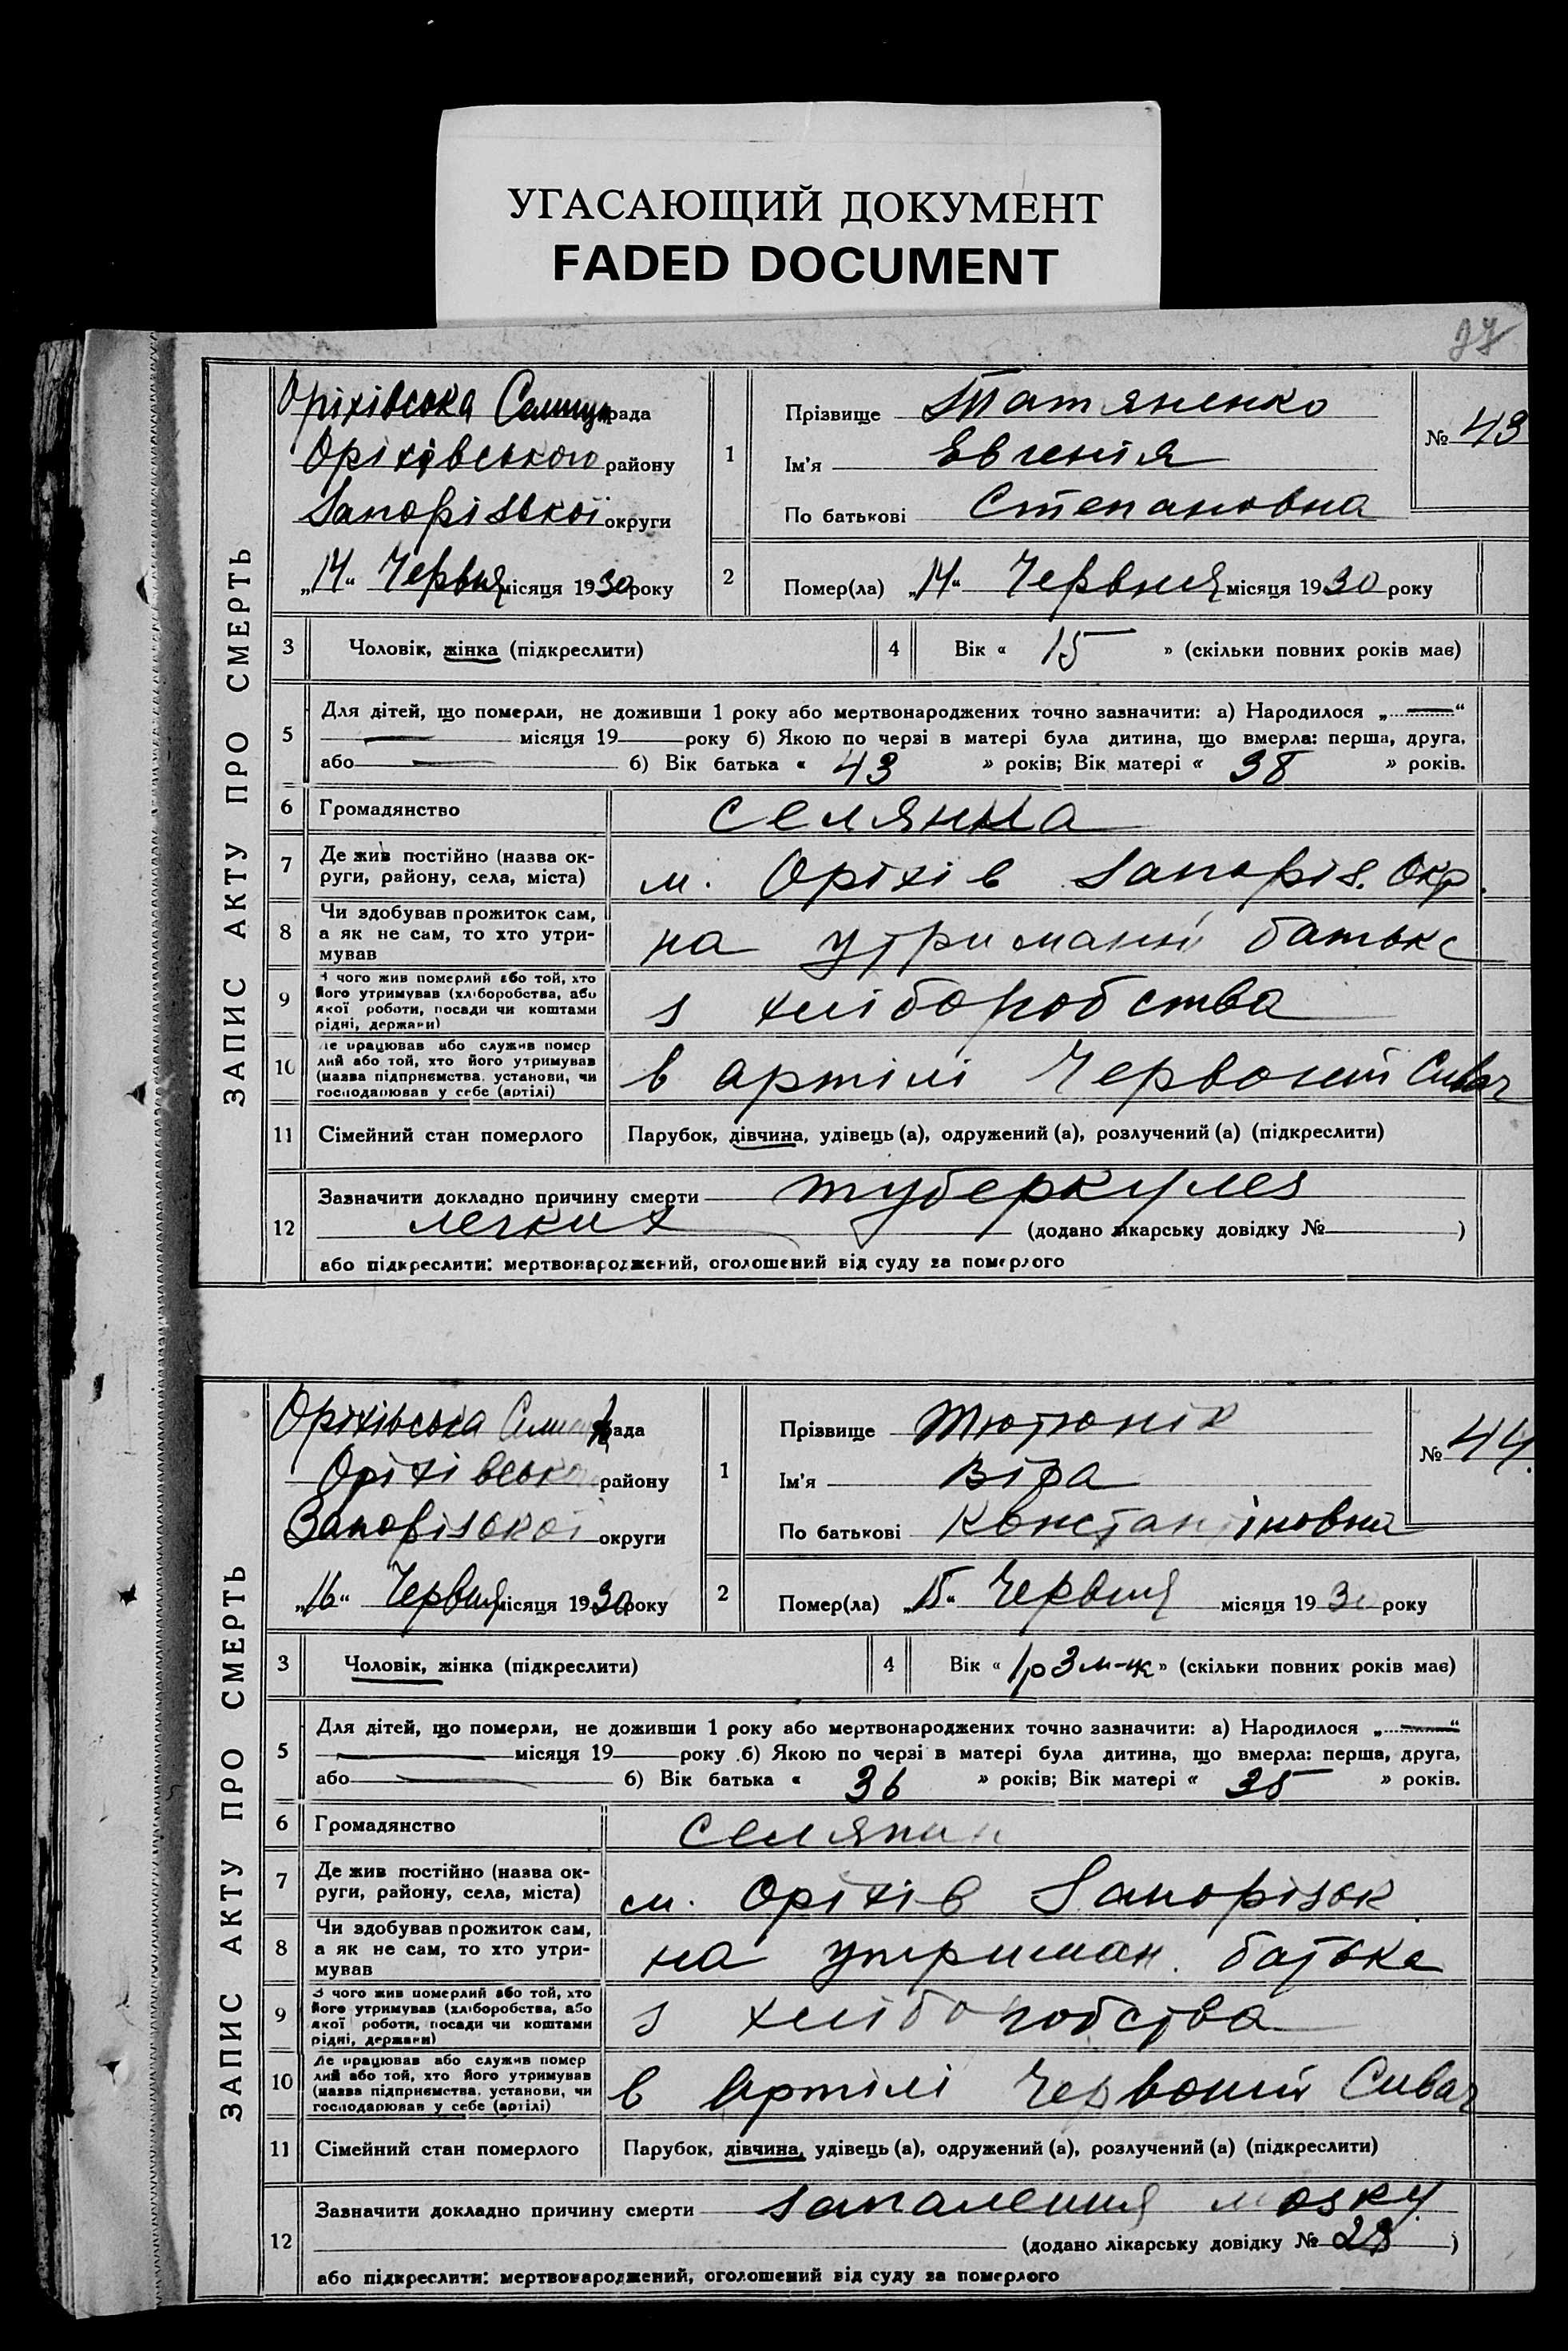 УГАСАЮЩИЙ ДОКУМЕНТ
FADED DOCUMENT
ЗАПИС АКТУ ПРО СМЕРТЬ
Оріхівська Селищн рада
Оріхівського району
Запорізької округи
„14“ Червня місяця 1930 року
1
Прізвище Татяненко
Ім'я Евгенія
По батькові Степановна
№ 43
2
Помер(ла) „14“ Червня місяця 1930 року
3 Чоловік, жінка (підкреслити)
4 Вік « 15 » (скільки повних років має)
5 Для дітей, що померли, не доживши 1 року або мертвонароджених точно зазначити: а) Народилося „—“
— місяця 19—року б) Якою по черзі в матері була дитина, що вмерла: перша, друга,
або — б) Вік батька « 43 » років; Вік матері « 38 » років.
6 Громадянство селянка
7 Де жив постійно (назва ок-
руги, району, села, міста) м. Оріхів Запоріз. Окр.
8 Чи здобував прожиток сам,
а як не сам, то хто утри-
мував на утриманні батька
9 З чого жив померлий або той, хто
його утримував (хліборобства, або
якої роботи, посади чи коштами
рідні, держави) з хліборобства
10 Де працював або служив помер
лий або той, хто його утримував
(назва підприємства, установи, чи
господарював у себе (артілі) в артілі Червоний Сивач
11 Сімейний стан померлого Парубок, дівчина, удівець (а), одружений (а), розлучений (а) (підкреслити)
12 Зазначити докладно причину смерти туберкулез
легких (додано лікарську довідку № )
або підкреслити: мертвонароджений, оголошений від суду за померлого
ЗАПИС АКТУ ПРО СМЕРТЬ
Оріхівська рада
Оріхівсько району
Запорізької округи
„16“ Червня місяця 1930 року
1
Прізвище Тютюнік
Ім'я Віра
По батькові Константіновна
№ 44.
2
Помер(ла) „15“ Червня місяця 1930 року
3 Чоловік, жінка (підкреслити)
4 Вік « 1р 3 м-ц » (скільки повних років має)
5 Для дітей, що померли, не доживши 1 року або мертвонароджених точно зазначити: а) Народилося „—“
— місяця 19—року б) Якою по черзі в матері була дитина, що вмерла: перша, друга,
або — б) Вік батька « 36 » років; Вік матері « 35 » років.
6 Громадянство селянин
7 Де жив постійно (назва ок-
руги, району, села, міста) м. Оріхів Запорізок
8 Чи здобував прожиток сам,
а як не сам, то хто утри-
мував на утриман. батька
9 З чого жив померлий або той, хто
його утримував (хліборобства, або
якої роботи, посади чи коштами
рідні, держави) з хліборобства
10 Де працював або служив помер
лий або той, хто його утримував
(назва підприємства, установи, чи
господарював у себе (артілі) в Артілі Червоний Сивач
11 Сімейний стан померлого Парубок, дівчина, удівець (а), одружений (а), розлучений (а) (підкреслити)
12 Зазначити докладно причину смерти запалення мозку
(додано лікарську довідку № 28 )
або підкреслити: мертвонароджений, оголошений від суду за померлого